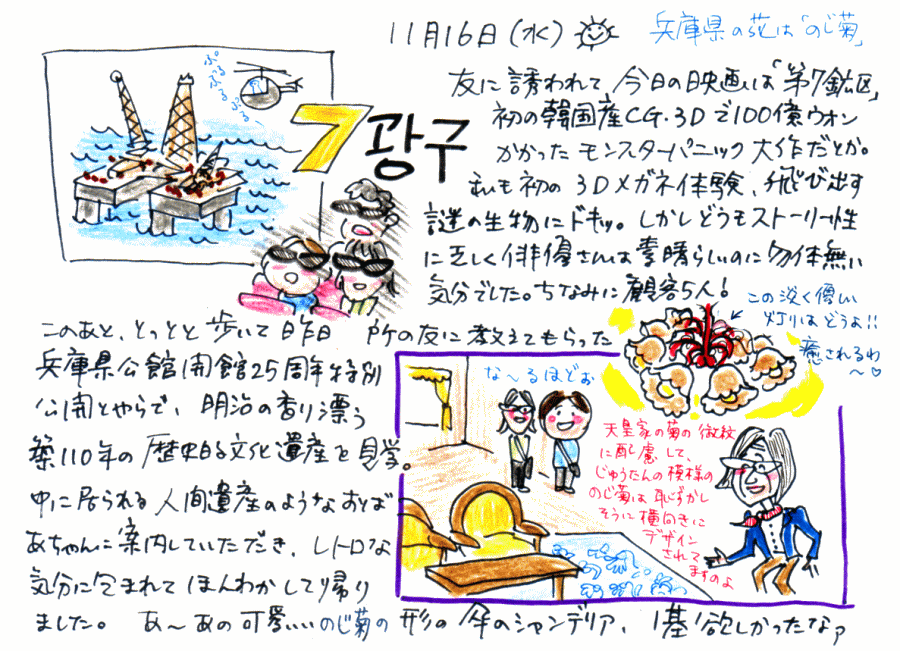 11月16日(水)
兵庫県の花は「のじ菊」
ぷるぷるぷる〜
7광구
友に誘われて今日の映画は「第7鉱区」
初の韓国産CG・3Dで100億ウォン
かかったモンスターパニック大作だとか。
私も初の3Dメガネ体験、飛び出す
謎の生物にドキッ。しかしどうもストーリー性
に乏しく俳優さんは素晴らしいのに勿体無い
気分でした。ちなみに観客5人!
この淡く優しい
灯りはどうよ!!
癒されるわ
〜♡
このあと、とっとと歩いて昨日 P介の友に教えてもらった
兵庫県公館開館25周年特別
公開とやらで、明治の香り漂う
築110年の歴史的文化遺産を見学。
中に居られる人間遺産のようなおば
あちゃんに案内していただき、レトロな
気分に包まれてほんわかして帰り
ました。 あ〜あの可愛いいのじ菊の形の傘のシャンデリア、1基欲しかったなァ
な〜るほどぉ
天皇家の菊の徽紋
に配慮して、
じゅうたんの模様の
のじ菊は恥ずかし
そうに横向きに
デザイン
されて
ますのよ